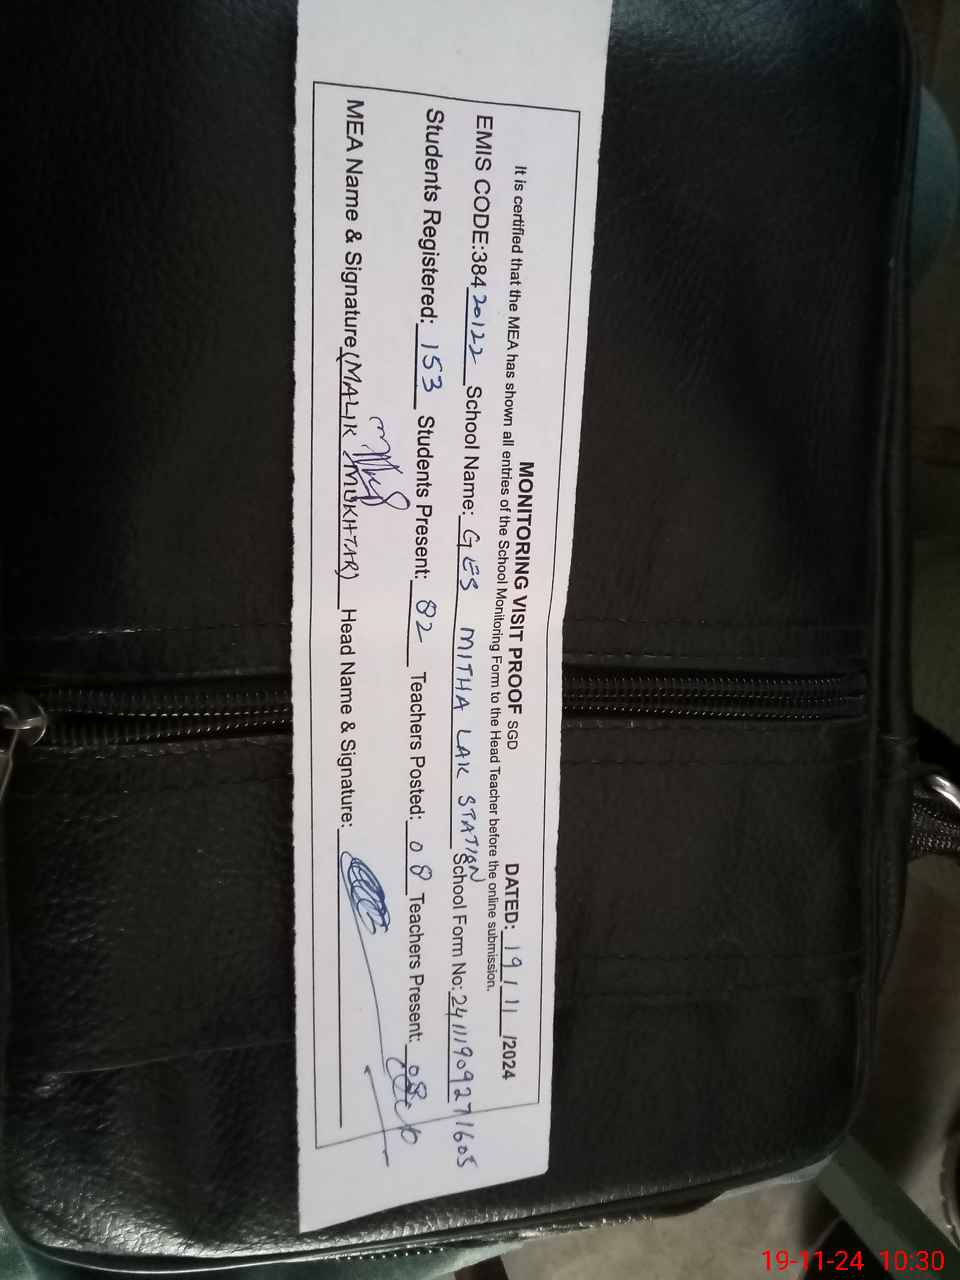 MONITORING VISIT PROOF SGD DATED: 19/11/2024
It is certified that the MEA has shown all entries of the School Monitoring Form to the Head Teacher before the online submission.
EMIS CODE:38420122 School Name: GES MITHA LAK STATION School Form No: 24111909271605
Students Registered: 153 Students Present: 82 Teachers Posted: 08 Teachers Present: 08
MEA Name & Signature (MALIK MUKHTAR) Head Name & Signature:
19-11-24 10:30